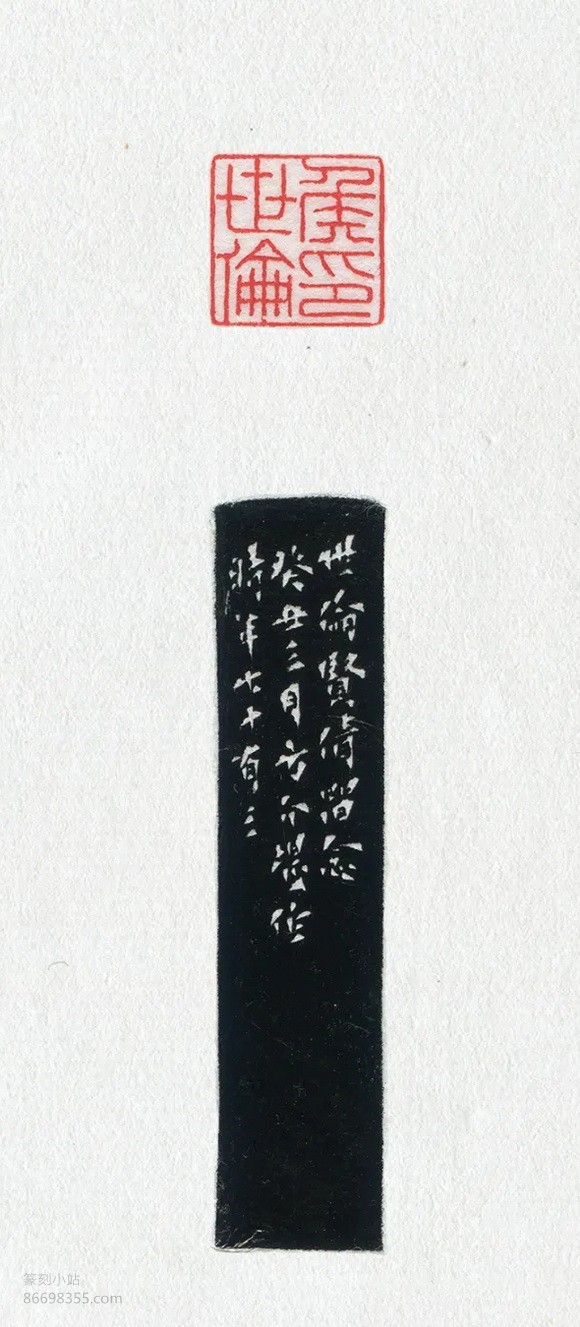 侯印
世倫
世倫賢倩留念
癸丑三月方介堪作
時年七十有三
篆刻小站
86698355.com